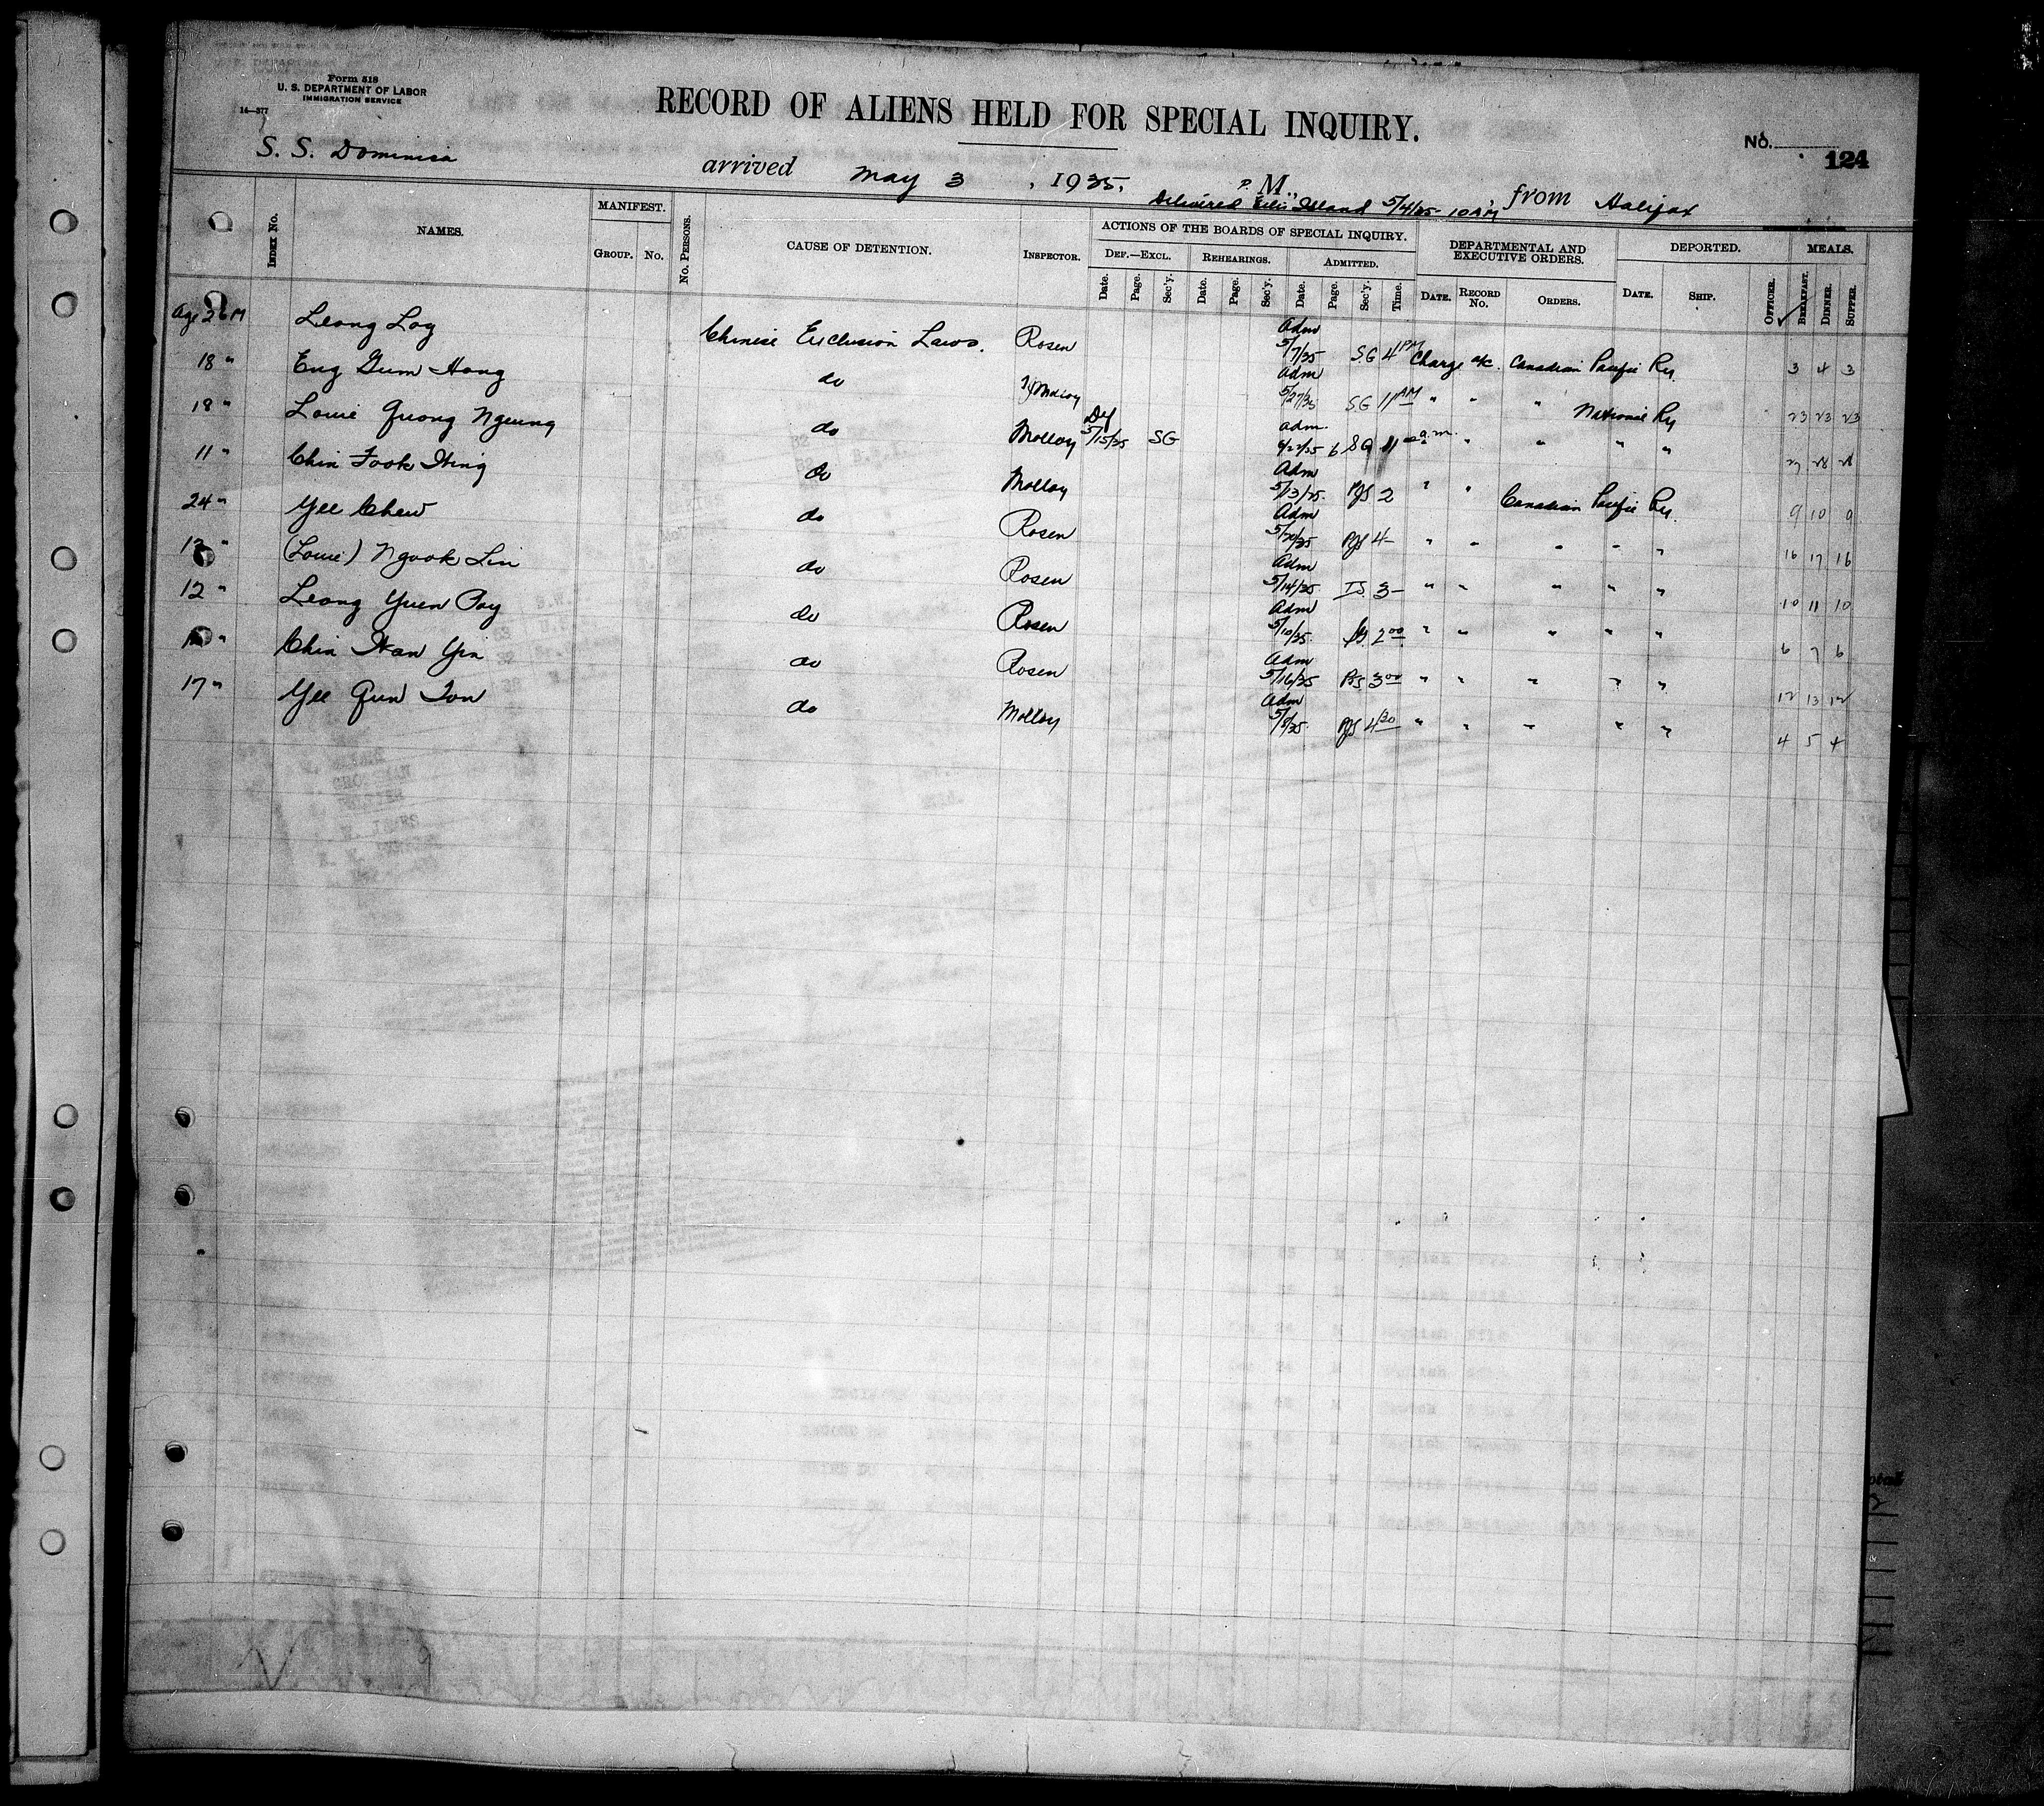 Form 518
U. S. DEPARTMENT OF LABOR
IMMIGRATION SERVICE
14—377
RECORD OF ALIENS HELD FOR SPECIAL INQUIRY.
No. 124
S. S. Dominica arrived May 3, 1925, P. M., from Halifax
Delivered Ellis Island 5/4/25 - 10 AM
INDEX No. NAMES. MANIFEST. GROUP. No. No. PERSONS. CAUSE OF DETENTION. INSPECTOR. ACTIONS OF THE BOARDS OF SPECIAL INQUIRY. DEF.—EXCL. Date. Page. Sec'y. REHEARINGS. Date. Page. Sec'y. ADMITTED. Date. Page. Sec'y. Time. DEPARTMENTAL AND EXECUTIVE ORDERS. DATE. RECORD No. ORDERS. DEPORTED. DATE. SHIP. OFFICER. MEALS. BREAKFAST. DINNER. SUPPER.
Age 26 M Leong Loy Chinese Exclusion Laws. Rosen Adm 5/7/25 SG 4 PM Charge a/c. Canadian Pacific Ry. 3 4 3
18 " Eng Gum Hong do Molloy Adm 5/27/25 SG 11 AM " " " National Ry 23 23 23
18 " Louie Quong Ngeung do Molloy Def 5/15/25 SG adm. 6 SG 11 a.m. " " " " 28
11 " Chin Fook Hing do Molloy Adm 5/13/25 PJS 2 " " Canadian Pacific Ry. 9 10 9
24 " Yee Chew do Rosen Adm 5/20/25 PJS 4- " " " " " 16 17 16
" (Louie) Ngook Lin do Rosen Adm 5/14/25 IS 3- " " " " " 10 11 10
12 " Leong Yuen Poy do Rosen Adm 5/10/25 2 00 " " " " " 6 7 6
" Chin Han Yin do Rosen Adm 5/16/25 PJS 3 00 " " " " " 12 13 12
17 " Yee Gun Ton do Molloy Adm 5/8/25 PJS 4 30 " " " " " 4 5 4